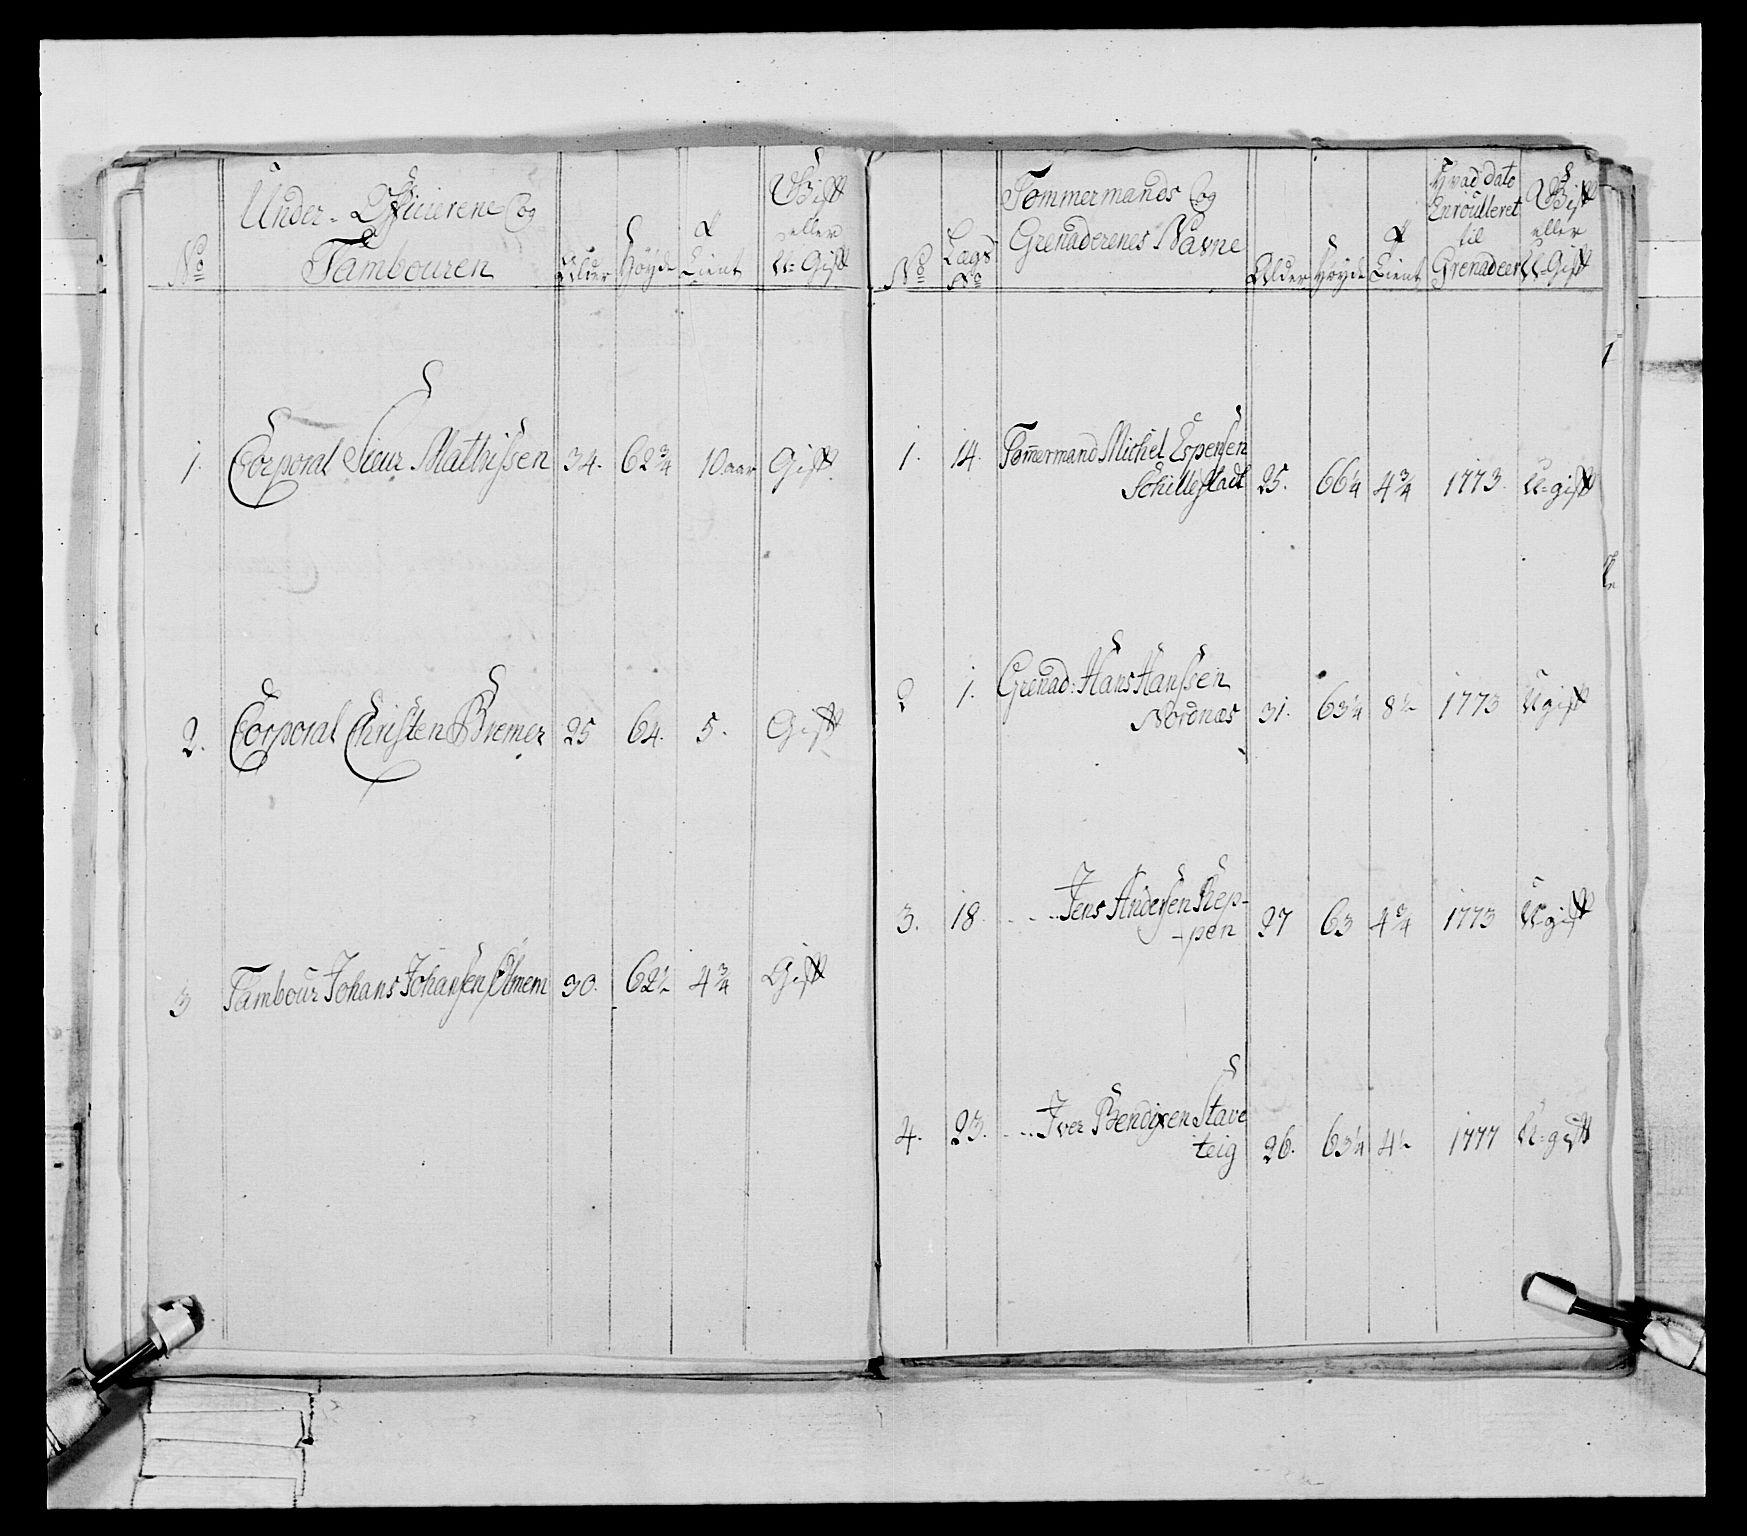 No
Under-Officierene og
Tambouren
Alder
Høyde
Tient
Gift
eller
U-Gift
1. Corporal Siur Mathissen 34. 62 3/4 10 aar Gift
2. Corporal Christen Bremer 25 64. 5. Gift
3 Tambour Johans Johansen 30. 62 1/2 4 3/4 Gift
No
Lægs
No
Tømmermands og
Grenaderenes Navne
Alder
Høyde
Tient
Hvad dato
Enroulleret
til
Grenadeer
Gift
eller
U-Gift
1. 14. Tom̄ermand Michel Espersen
Schillestadt 25. 66 1/4 4 3/4 1773. U-gift
2 1. Grenad: Hans Hanssen
Nordnæs 31. 63 1/4 8 1/2 1773 Ugift
3. 18. - - - Jens Andersen Rep-
-pen 27 63 4 3/4 1773 U-gift
4. 23. - - - Iver Bendixen Stave
teig 26. 63 1/4 4 1/2 1777 U-gift